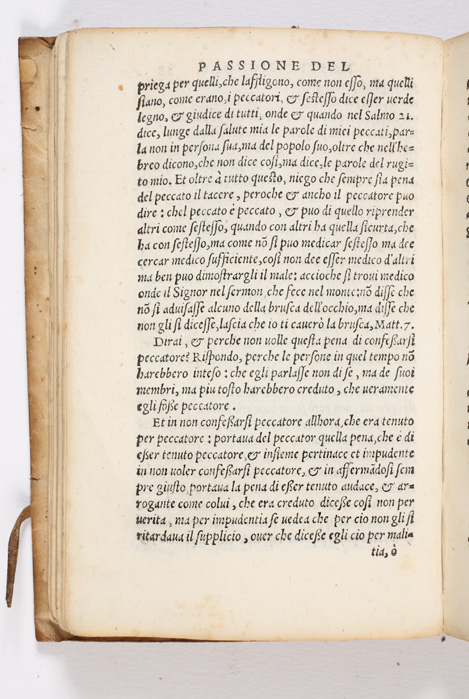 PASSIONE DEL
priega per quelli, che lassligono, come non esso, ma quelli
siano, come erano, i peccatori, & sestesso dice esser uerde
legno, & giudice di tutti, onde & quando nel Salmo 21.
dice, lunge dalla salute mia le parole di miei peccati, par-
la non in persona sua, ma del popolo suo, oltre che nell'he-
breo dicono, che non dice così, ma dice, le parole del rugi-
to mio. Et oltre à tutto questo, niego che sempre sia pena
del peccato il tacere, peroche & ancho il peccatore puo
dire: chel peccato è peccato, & puo di quello riprender
altri come sestesso, quando con altri ha quella sicurta, che
ha con sestesso, ma come nõ si puo medicar sestesso ma dee
cercar medico sufficiente, così non dee esser medico d'altri
ma ben puo dimostrargli il male: accioche si troui medico
onde il Signor nel sermon, che fece nel monte: nõ disse che
nõ si aduisasse alcuno della brusca dell'occhio, ma disse che
non gli si dicesse, lascia che io ti cauerò la brusca, Matt. 7.
Dirai, & perche non uolle questa pena di confessarsi
peccatore? Rispondo, perche le persone in quel tempo nõ
harebbero inteso: che egli parlasse non di se, ma de suoi
membri, ma piu tosto harebbero creduto, che ueramente
egli fosse peccatore.
Et in non confessarsi peccatore allhora, che era tenuto
per peccatore: portaua del peccator quella pena, che è di
esser tenuto peccatore, & insieme pertinace et impudente
in non uoler confessarsi peccatore, & in affermãdosi sem
pre giusto, portaua la pena di esser tenuto audace, & ar-
rogante come colui, che era creduto dicesse così non per
uerita, ma per impudentia se uedea che per cio non gli si
ritardaua il supplicio, ouer che dicesse egli cio per mali-
tia, ò